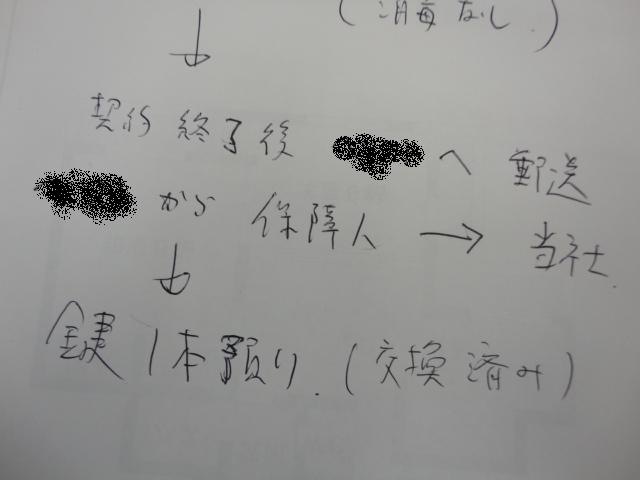 (消毒なし.)
↓
契約終了後 へ 郵送
から 保障人 → 当社.
↓
鍵1本預り.(交換済み)